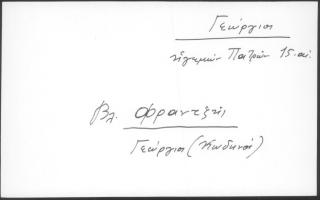 Γεώργιος
ἡγεμὼν Πατρῶν 15. αἰ.
βλ. Φραντζῆς
Γεώργιος (Κωδινοί)